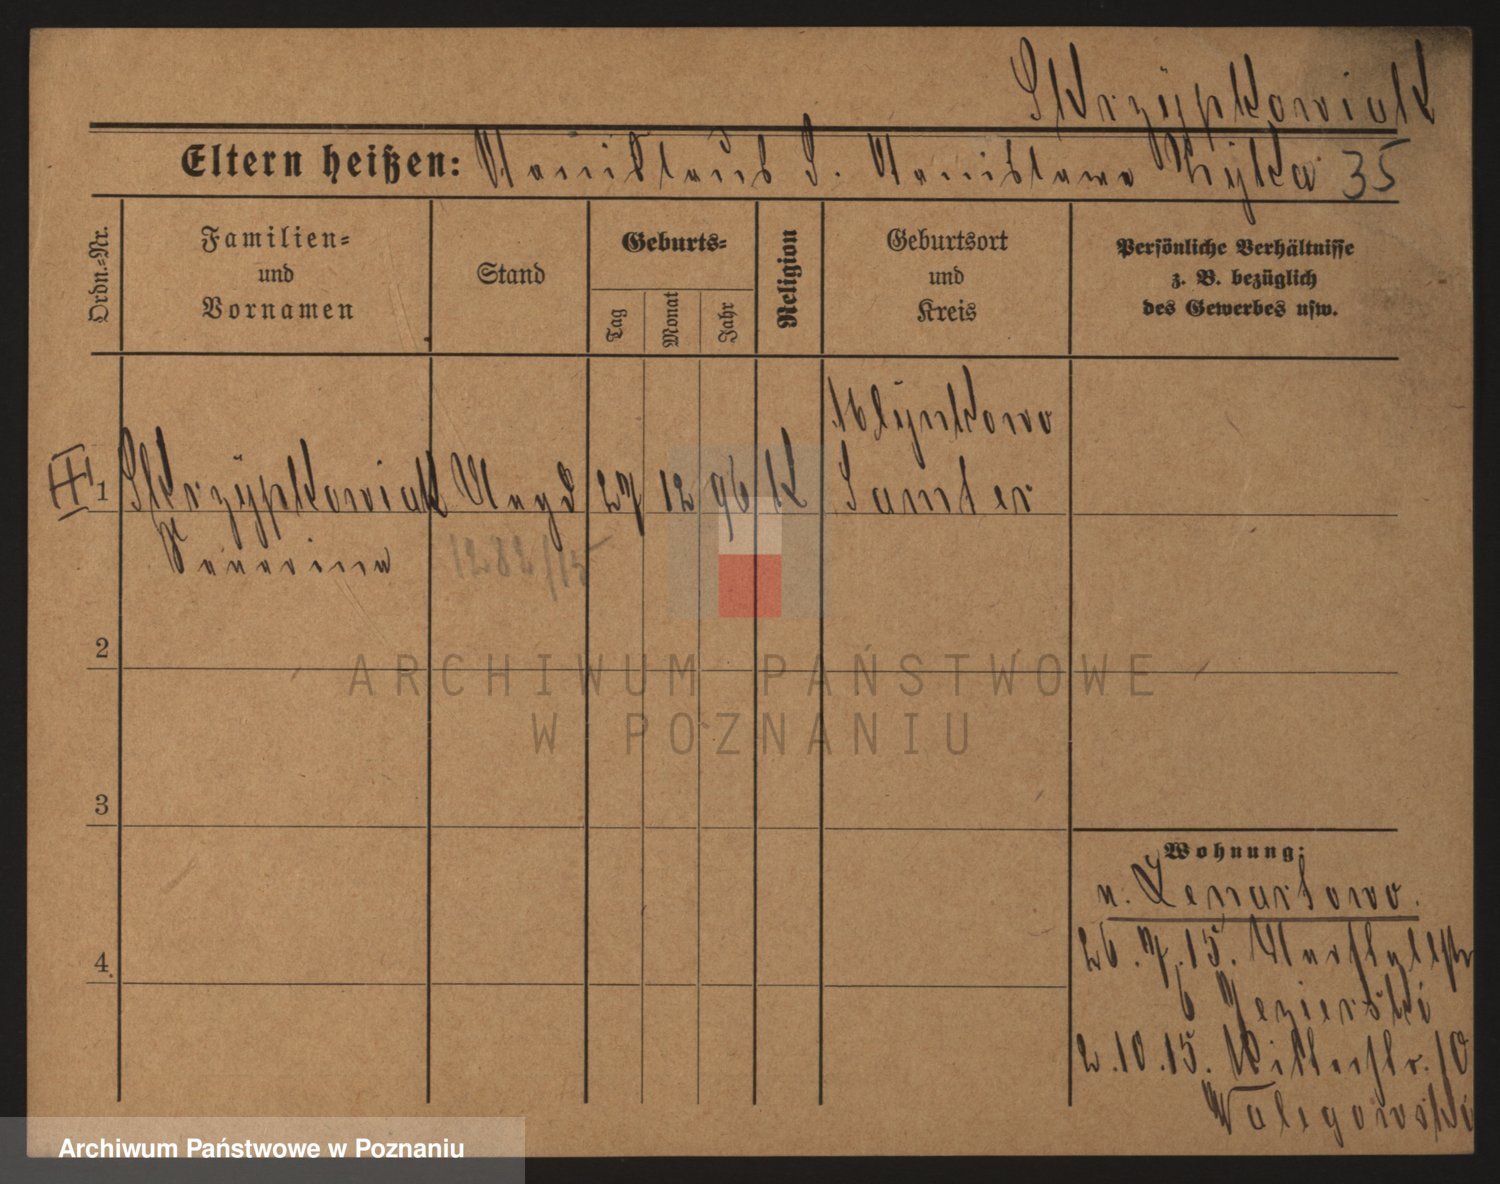 Skrzypkowiak
Eltern heißen: Stanislaus S. Stanislawa 35
Ordn.-Nr.
Familien-
und
Vornamen
Stand
Geburts-
Tag
Monat
Jahr
Religion
Geburtsort
und
Kreis
Persönliche Verhältnisse
z. B. bezüglich
des Gewerbes usw.
Mlynkowo
1 Skrzypkowiak Magd 27 12 96 K Samter
1282/15
2
3
4
Wohnung:
v. Lenartowo.
26.7.15.
6 Jezierski
2.10.15. Ritterstr. 10
ARCHIWUM PAŃSTWOWE
W POZNANIU
Archiwum Państwowe w Poznaniu